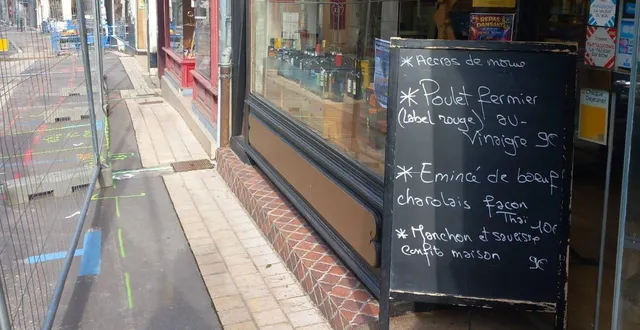 REPAS
DANSANT
* Accras de morue
* Poulet fermier
(label rouge) au-
Vinaigre 9€
* Emincé de bœuf
charolais façon
Thaï 10€
* Manchon et saucisse
confits maison 9€